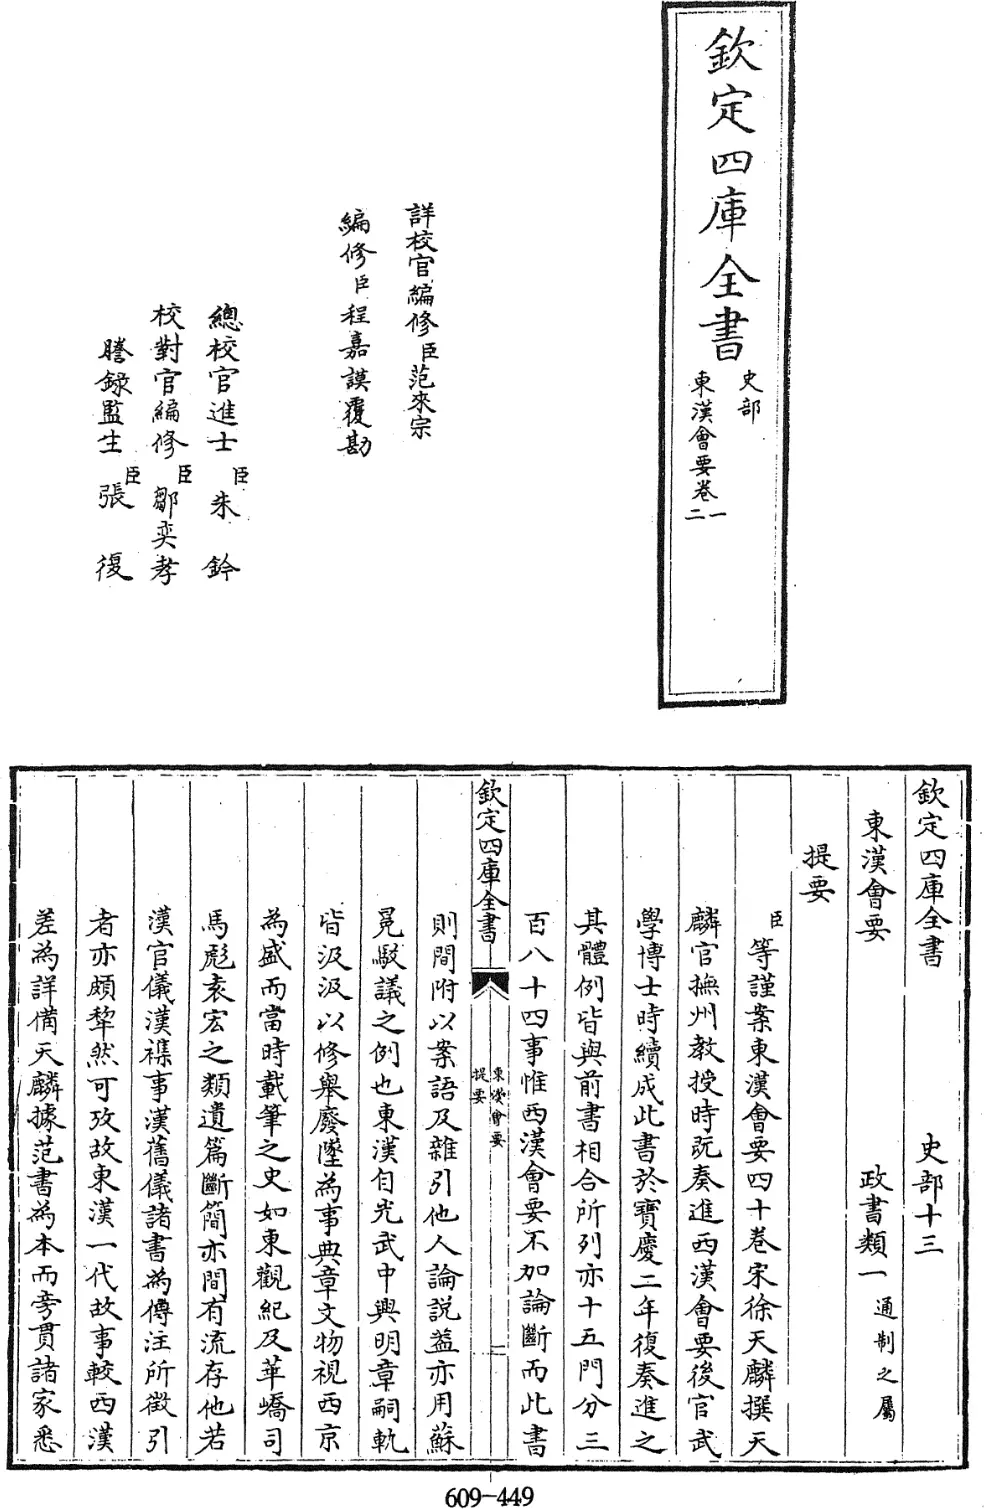 欽定四庫全書
史部
東漢會要卷一二
詳校官編修臣范來宗
編修臣程嘉謨覆勘
總校官進士臣朱鈐
校對官編修臣鄒奕孝
謄錄監生臣張復
欽定四庫全書 史部十三
東漢會要 政書類一通制之屬
提要
臣等謹案東漢會要四十卷宋徐天麟撰天
麟官撫州教授時既奏進西漢會要後官武
學博士時續成此書於寶慶二年復奏進之
其體例皆與前書相合所列亦十五門分三
百八十四事惟西漢會要不加論斷而此書
欽定四庫全書 東漢會要提要 一
則間附以案語及雜引他人論說益亦用蘇
冕駁議之例也東漢自光武中興明章嗣軌
皆汲汲以修舉廢墜為事典章文物視西京
為盛而當時載筆之史如東觀紀及華嶠司
馬彪袁宏之類遺篇斷簡亦間有流存他若
漢官儀漢襍事漢舊儀諸書為傳注所徵引
者亦頗犂然可攷故東漢一代故事較西漢
差為詳備天麟據范書為本而旁貫諸家悉
609-449